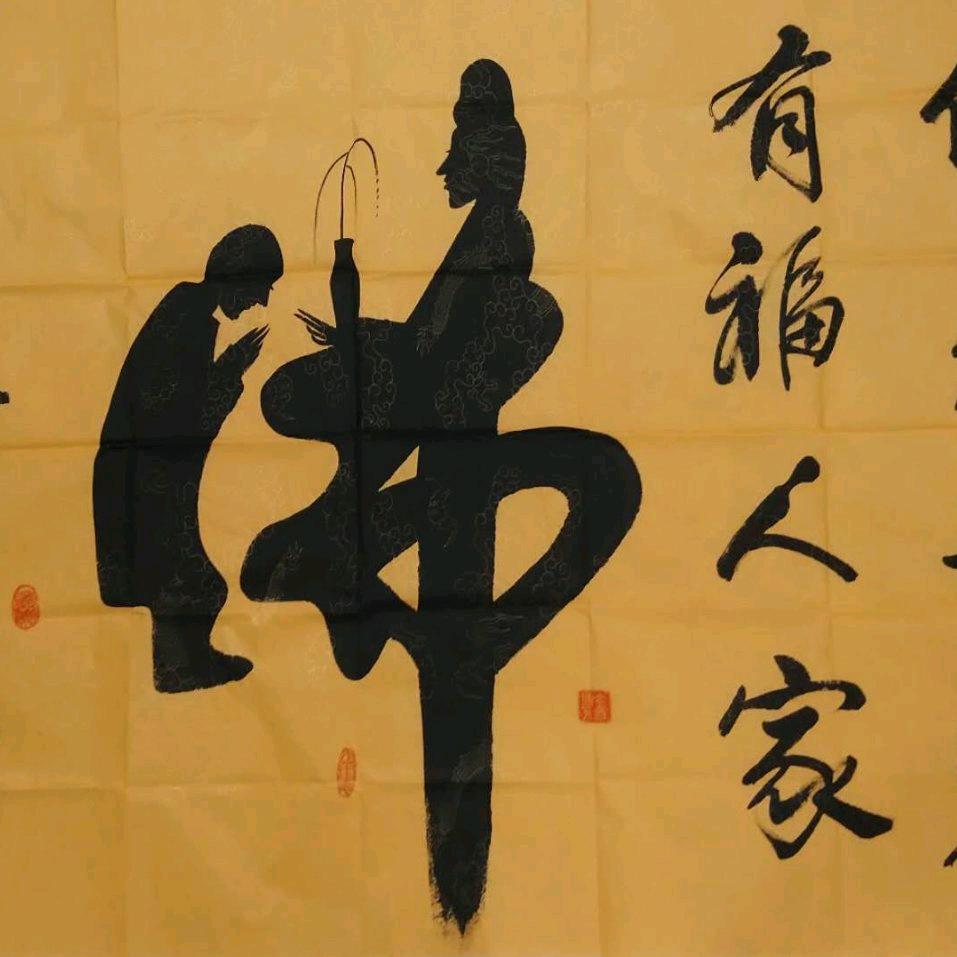 有福人家
佛